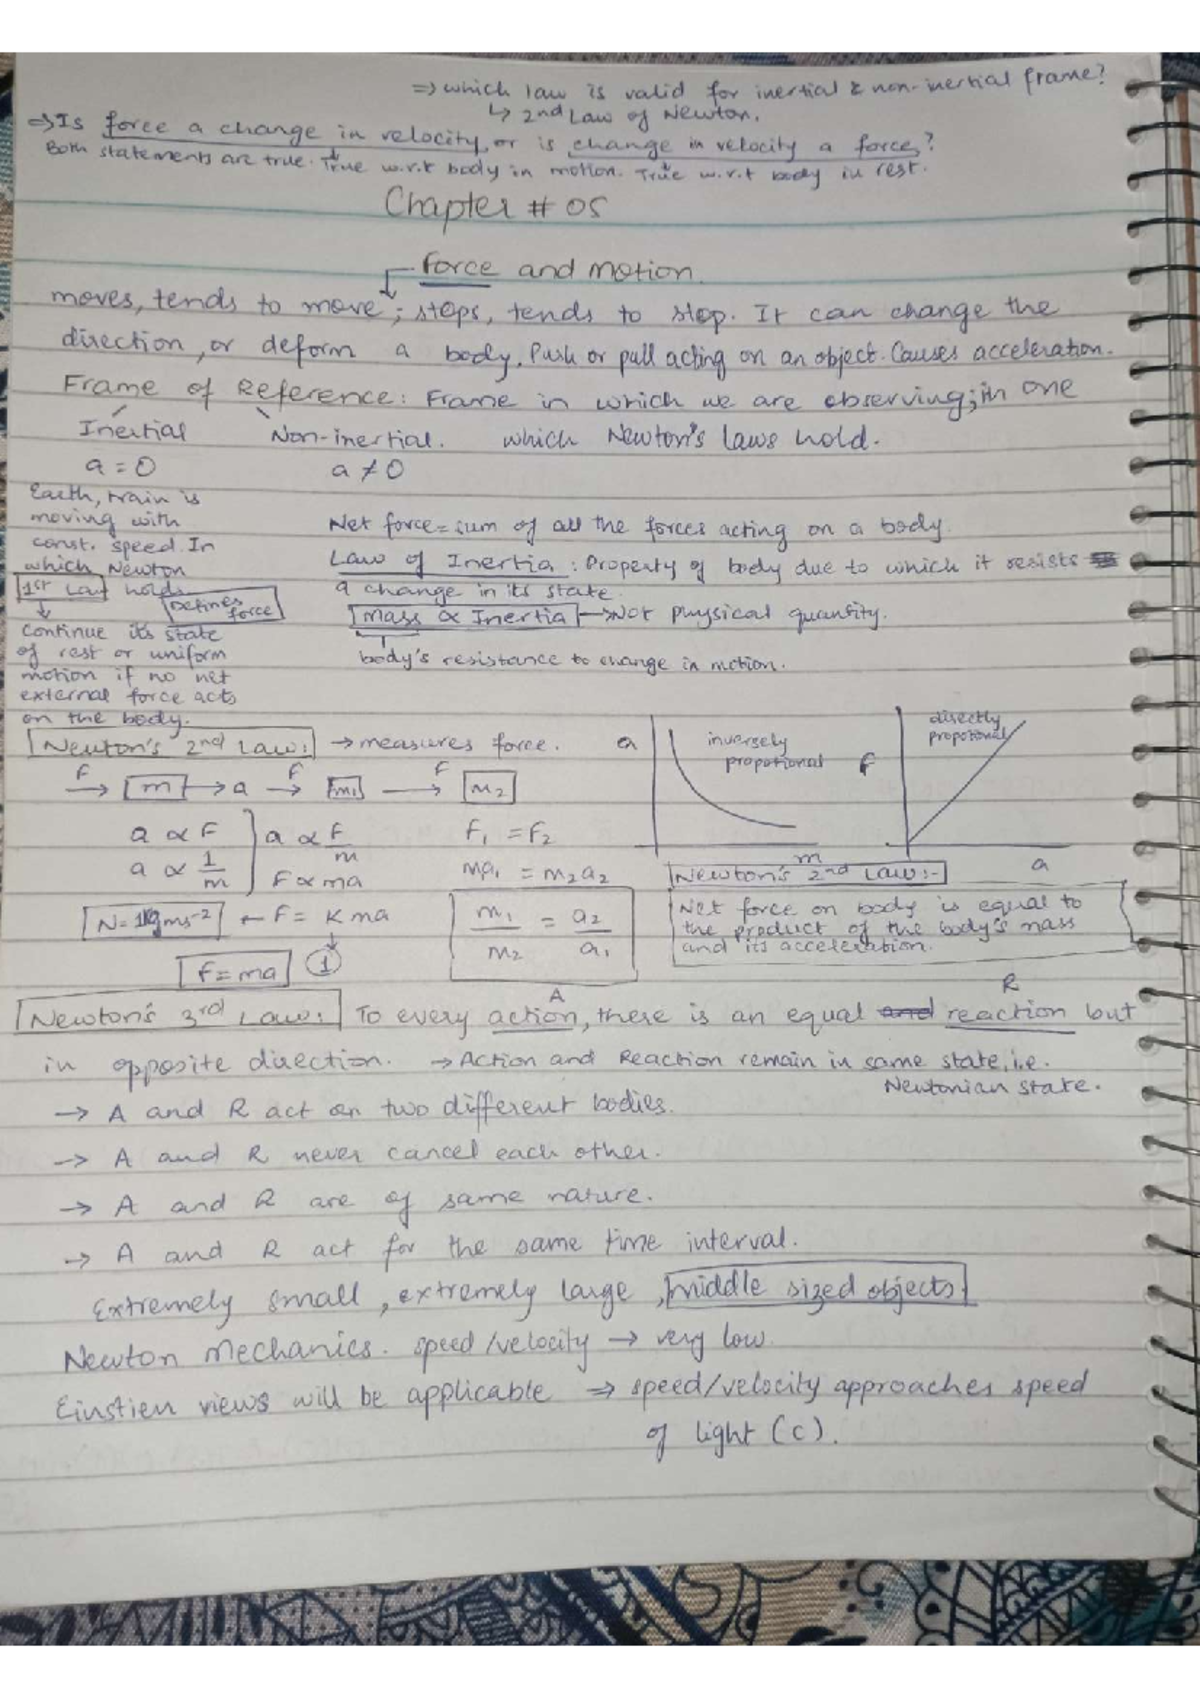 ⇒ which law is valid for inertial & non-inertial frame?
↳ 2nd Law of Newton.
⇒ Is force a change in velocity, or is change in velocity a force?
Both statements are true. True w.r.t body in motion. True w.r.t body in rest.
Chapter # 05
Force and motion.
moves, tends to move; stops, tends to stop. It can change the
direction, or deform a body. Push or pull acting on an object. Causes acceleration.
Frame of Reference: Frame in which we are observing; in one
which Newton's laws hold.
Inertial Non-inertial.
a = 0 a ≠ 0
Earth, train is
moving with
const. speed. In
which Newton
1st Law holds.
Defines force
continue its state
of rest or uniform
motion if no net
external force acts
on the body.
Net force = sum of all the forces acting on a body.
Law of Inertia: Property of body due to which it resists
a change in its state.
Mass ∝ Inertia → Not physical quantity.
body's resistance to change in motion.
Newton's 2nd Law: → measures force.
F → m → a F → m₁ F → m₂
a ∝ F
a ∝ 1/m
a ∝ F/m
F ∝ ma
N = 1kgms⁻² ← F = Kma
F = ma ①
F₁ = F₂
ma₁ = m₂a₂
m₁/m₂ = a₂/a₁
a inversely
propotional
m
F directly
propotional
a
Newton's 2nd Law:-
Net force on body is equal to
the product of the body's mass
and its acceleration.
A R
Newton's 3rd Law: To every action, there is an equal and reaction but
in opposite direction. → Action and Reaction remain in same state, i.e.
Newtonian state.
→ A and R act on two different bodies.
→ A and R never cancel each other.
→ A and R are of same nature.
→ A and R act for the same time interval.
Extremely small, extremely large, middle sized objects
Newton Mechanics. speed/velocity → very low.
Einstien views will be applicable ⇒ speed/velocity approaches speed
of light (c).